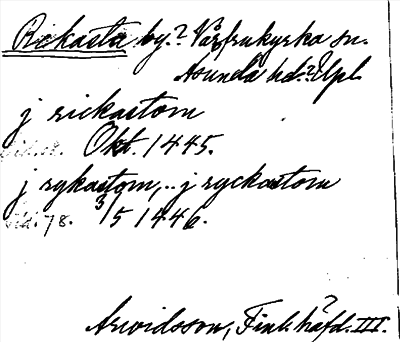 Rickasta by.? Vårfrukyrka sn.
Åsunda hd? Upl.
j rickastom
sid. 12. Okt. 1445.
j rykastom, .. j ryckastom
sid. 78. 3/5 1446.
Arwidsson, Finl. häfd. III.